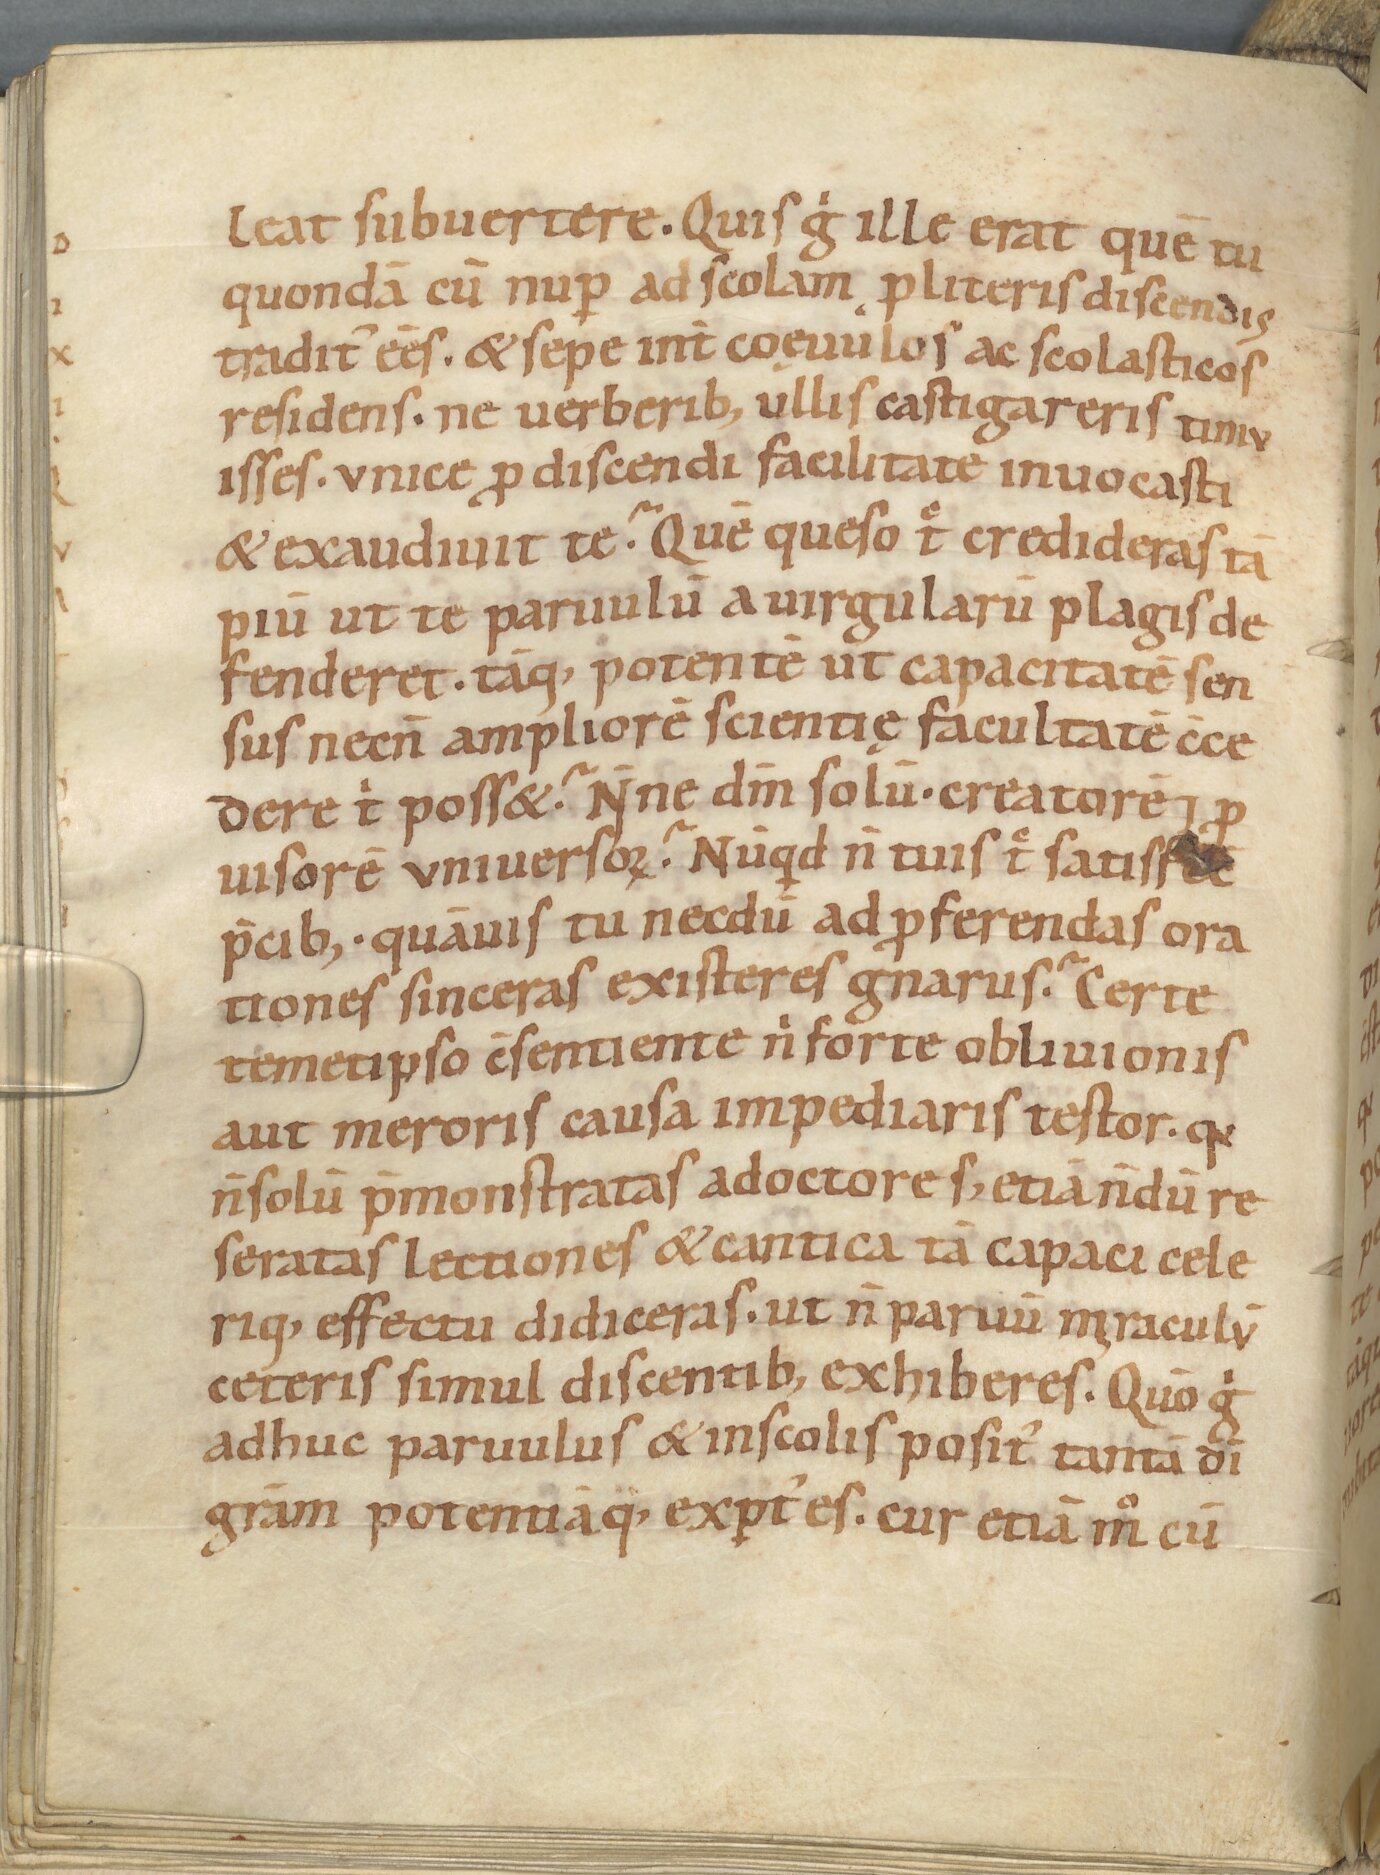 leat subuertere. Quis gͥ ille erat quē tu
quondā cū nuꝑ ad scolam ꝓ literis discendis
tradit᾿ eēs. & sepe int̄ coęuulos ac scolasticos
residens. ne uerberib; ullis castigareris timu
isses. vnice ꝓ discendi facilitate inuocasti
& exaudiuit te? Quē queso tͤ credideras tā
piū ut te paruulū a uirgularū plagis de
fenderet. tāq; potentē ut capacitatē sen
sus necn̄ ampliorē scientię facultatē c̄ce
dere tͥ poss&? N̄ne dm̄ solū. creatorē ⁊ ꝓ
uisorē vniuersoꝝ? Nūqd n̄ tuis tͤ satisfec̄
p̄cib;. quāuis tu necdū ad ꝓferendas ora
tiones sinceras existeres gnarus? Certe
temetipso c̄sentiente nͥ forte obliuionis
aut meroris causa impediaris testor. qa
n̄ solū p̄monstratas a doctore s; etiā n̄dū re
seratas lectiones & cantica tā capaci cele
riq; effectu didiceras. ut n̄ paruū miraculū
ceteris simul discentib; exhiberes. Quō gͥ
adhuc paruulus & in scolis posit᾿ tantā dī
grām potentiāq; exꝑt᾿ es. cur etiā mͦ cū